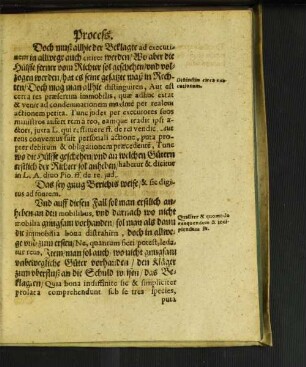 Process.
Doch muß allhie der Beklagte ad executi-
onem in allwege auch citiret werden / Wo aber die
Hülffe ferner vom Richter sol geschehen / und vol-
zogen werden / hat es seine gesatzte way in Rech-
ten / Doch mag man allhie distinguiren, Aut est
certa res praesertim immobilis, quae
& venit ad condemnationem per realem
actionem petita. Tunc judex per executores suos
ministros aufert rem a reo, eamque tradit ipsi a-
ctori, juxta L. qui restituere ff. de rei vendic.
reus conveniatur personali actione, puta pro-
pter debitum & obligationem praecedente, Tunc
wo die Hülffe geschehen / und an welchen Gütern
erstlich der Richter sol anheben, habetur & dicitur
in L. A divo Pio. ff. de re. jud.
Das sey gnug Berichts weise, & sic digi-
tus ad fontem.
Und auff diesen Fall sol man erstlich an-
heben an den mobilibus, und darnach wo nicht
mobilia gnugsam vorhanden / sol man als dann
die immobilia bona distrahirn, doch in allwe-
ge von zum ersten / Ne, quantum fieri potest, leda-
tur reus, Item / man sol auch / wo nicht gnugsam
unbewegliche Güter vorhanden / den Kläger
zum überfluß an die Schuld weisen / das Be-
klagten / Quia bona indistincte sic & simpliciter
prolata comprehendunt sub se tres species,
puta
Distinctio circa exe-
cutionem.
Qualiter & quomodo